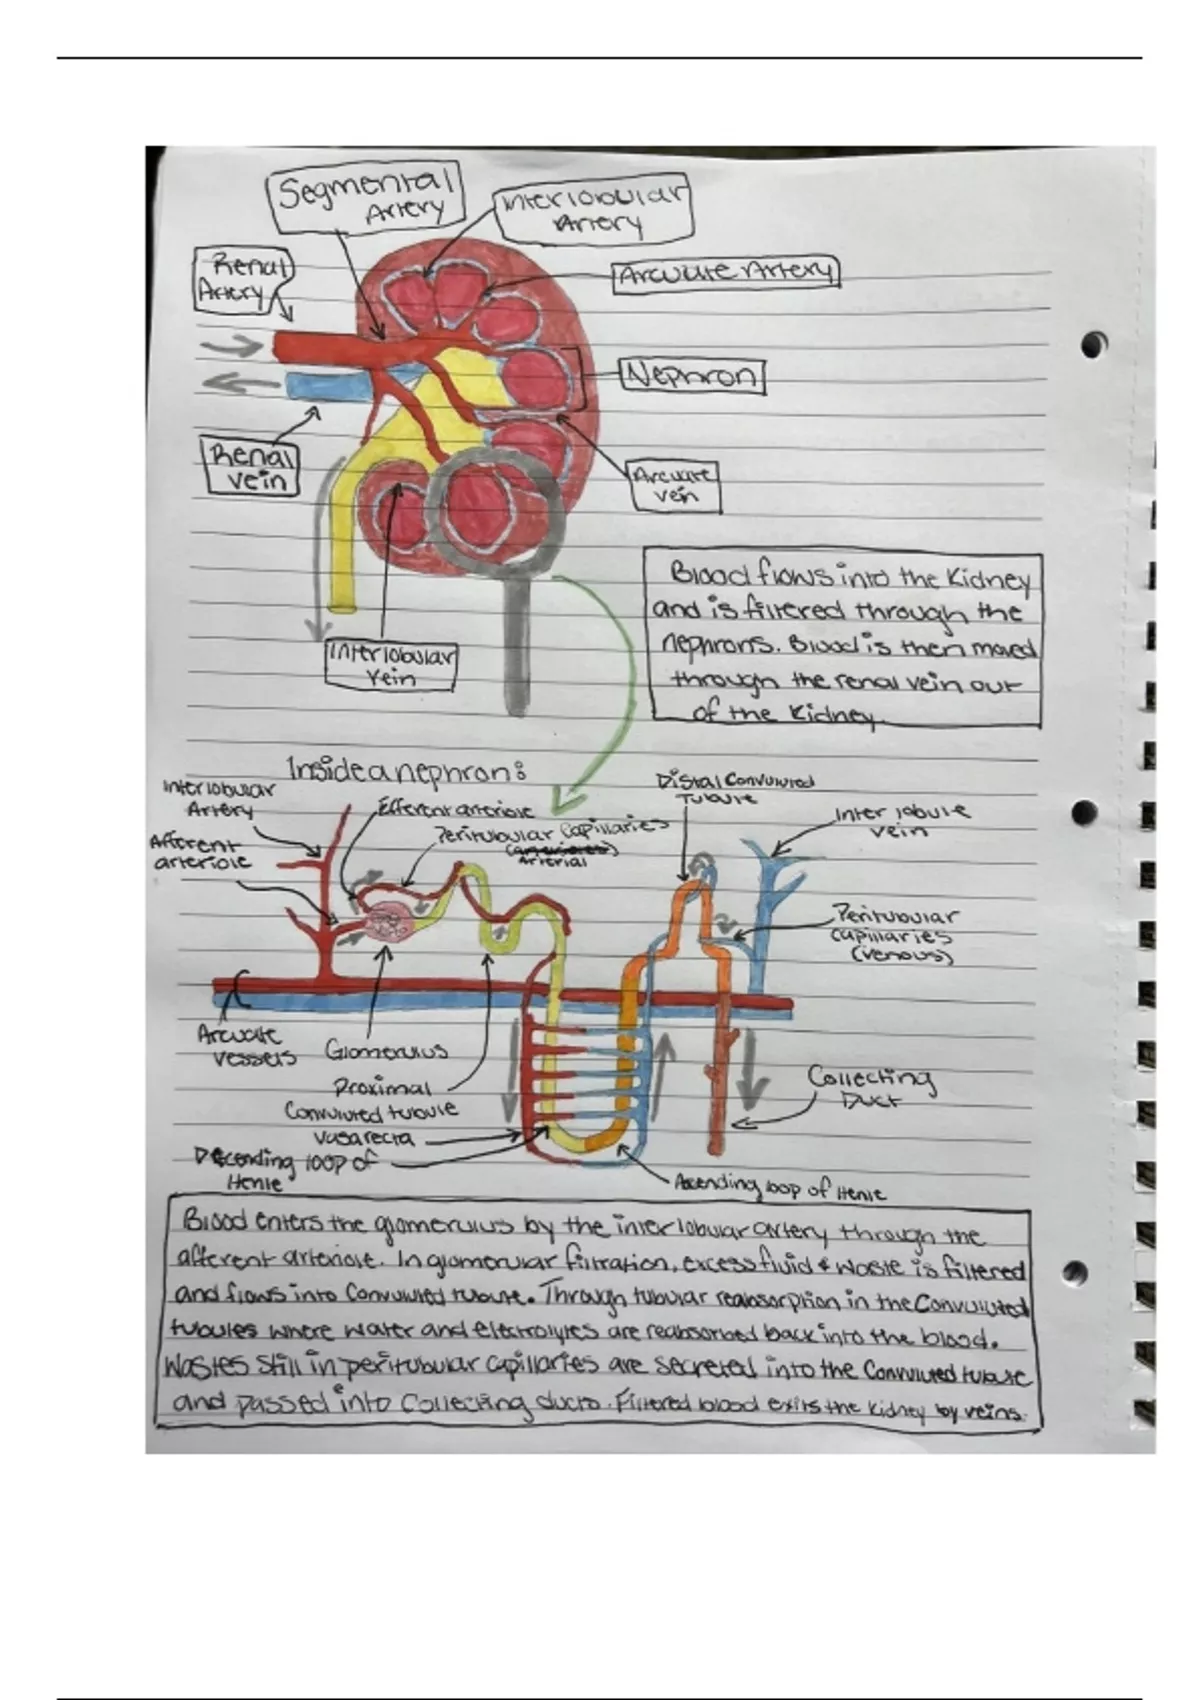 Segmental
Artery
Interlobular
Artery
Renal
Artery
Arcuate Artery
Nephron
Renal
vein
Arcuate
vein
Blood flows into the Kidney
and is filtered through the
nephrons. Blood is then moved
through the renal vein out
of the Kidney.
Interlobular
vein
Inside a nephron:
Interlobular
Artery
Efferent arteriole
Distal Convoluted
Tubule
Peritubular Capillaries
Arterial
Interlobule
vein
Afferent
arteriole
Peritubular
capillaries
(venous)
Arcuate
vessels
Glomerulus
Proximal
Convoluted tubule
Vasa recta
Descending loop of
Henle
Collecting
Duct
Ascending loop of Henle
Blood enters the glomerulus by the interlobular artery through the
afferent arteriole. In glomerular filtration, excess fluid & waste is filtered
and flows into Convoluted tubule. Through tubular reabsorption in the Convoluted
tubules where water and electrolytes are reabsorbed back into the blood.
Wastes still in peritubular capillaries are secreted into the Convoluted tubule
and passed into Collecting ducts. Filtered blood exits the kidney by veins.